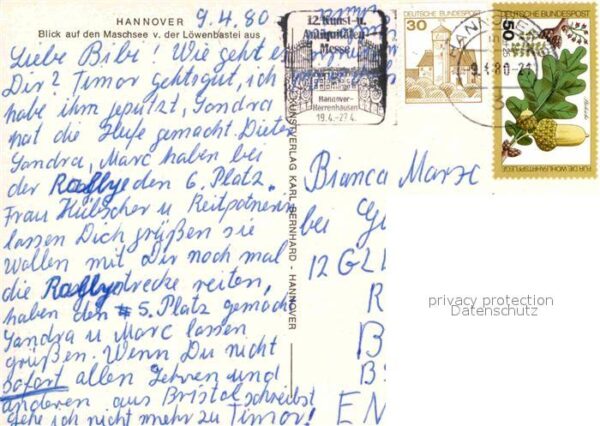 HANNOVER
Blick auf den Maschsee v. der Löwenbastei aus
9.4.80
Liebe Bibi! Wie geht es
Dir? Timor gehts gut, ich
habe ihn geputzt, Sandra
hat die Hufe gemacht. Dieter
Sandra, Marc haben bei
der Rallye den 6. Platz.
Frau Hübscher u. Reitpatnerin
lassen Dich grüßen sie
wollen mit Dir noch mal
die Rallystrecke reiten,
haben den 5. Platz gemacht
Sandra u Marc lassen
grüßen. Wenn Du nicht
sofort allen Lehren und
anderen aus Bristol schreibst
gehe ich nicht mehr zu Timor!
KUNSTVERLAG KARL BERNHARD - HANNOVER
12. Kunst- u.
Antiquitäten
Messe
Hannover-
Herrenhausen
19.4.-27.4.
30
DEUTSCHE BUNDESPOST
HANN
-9.4.80-21
3
DEUTSCHE BUNDESPOST
50
+25
FÜR DIE WOHLFAHRTSPFLEGE
Bianca Marx
bei
12
R
B
B
EN
privacy protection
Datenschutz